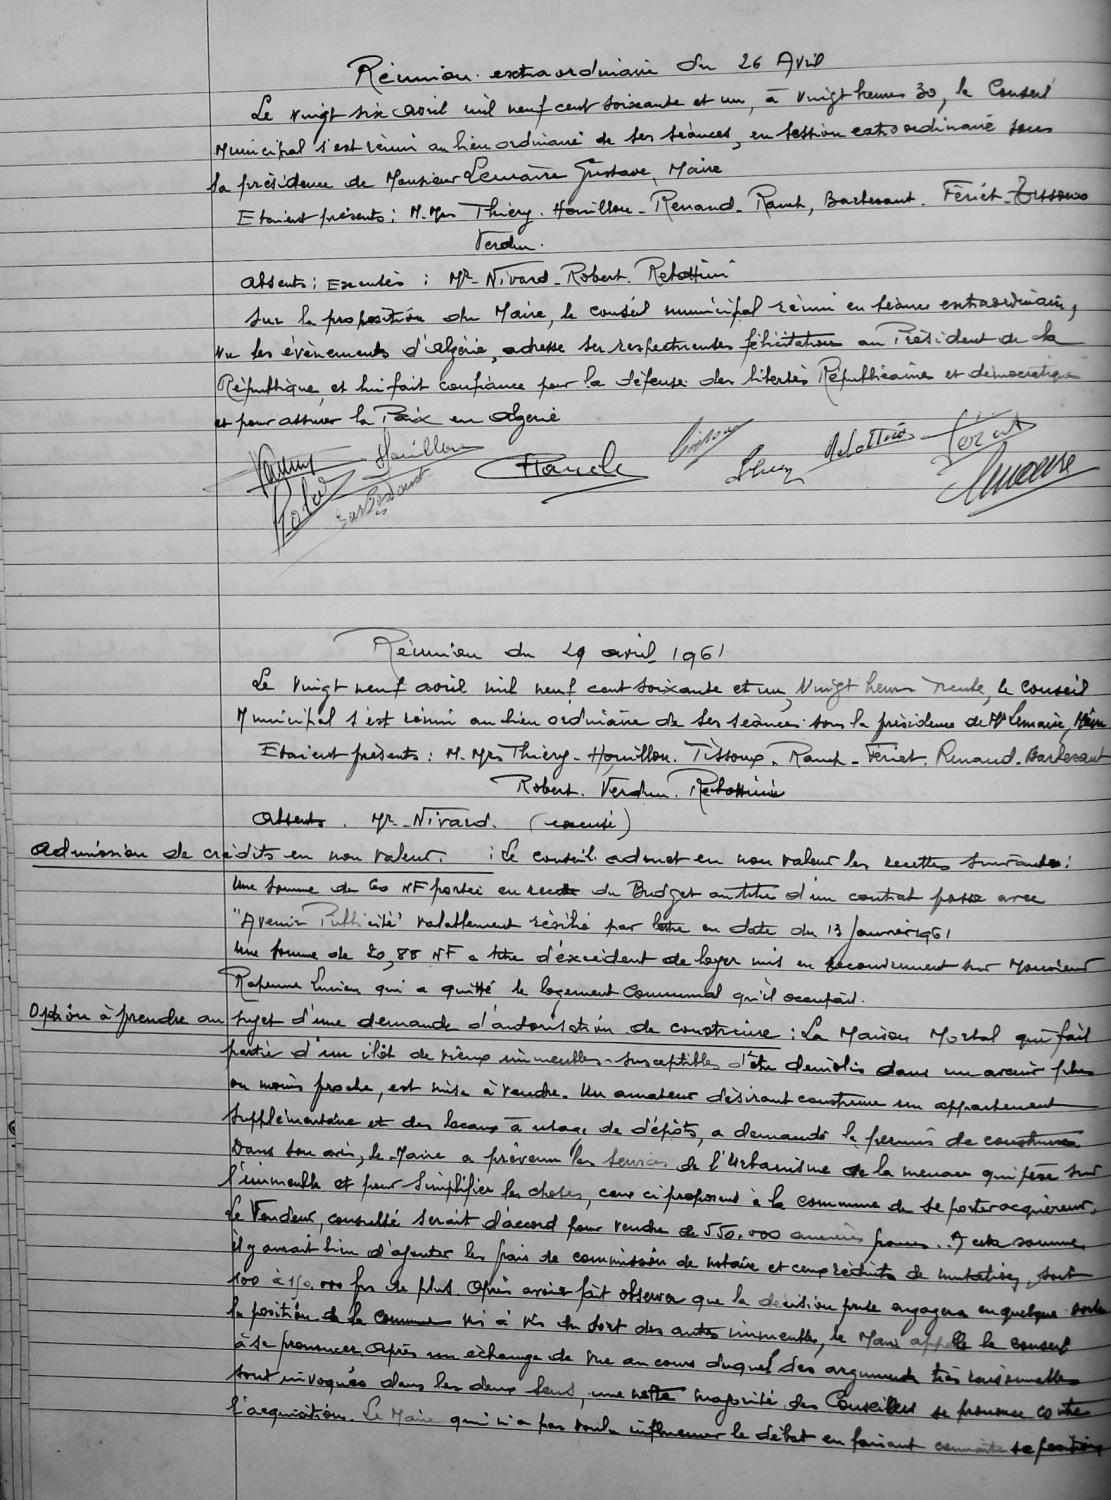 Réunion extraordinaire du 26 Avril
Le vingt six avril mil neuf cent soixante et un, à vingt heures 30, le Conseil
Municipal s'est réuni au lieu ordinaire de ses séances, en session extraordinaire sous
la présidence de Monsieur Lemaire Gustave, Maire
Etaient présents : M.Mrs Thiéry - Houillon - Renaud - Rauch, Barbesant - Fériet - Tissoux
Verdun.
Absents : Excusés : Mr Nivard - Robert - Relottini
Sur la proposition du Maire, le conseil municipal réuni en séance extraordinaire,
vu les évènements d'Algérie, adresse ses respectueuses félicitations au Président de la
République, et lui fait confiance pour la défense des libertés Républicaines et démocratiques
et pour assurer la Paix en Algérie
Houillon
Rauch
Relottini
Lemaire
Réunion du 29 avril 1961
Le vingt neuf avril mil neuf cent soixante et un, vingt heures trente, le conseil
Municipal s'est réuni au lieu ordinaire de ses séances sous la présidence de Mr Lemaire, Maire
Etaient présents : M.Mrs Thiéry - Houillon - Tissoux - Rauch - Fériet, Renaud - Barbesant
Robert - Verdun - Relottini
Absents . Mr Nivard. (excusé)
Admission de crédits en non valeur. : Le conseil admet en non valeur les recettes suivantes :
Une somme de 60 NF portée en recette du Budget au titre d'un contrat passé avec
"Avenir Publicité" valablement résilié par lettre en date du 13 Janvier 1961
Une somme de 20,88 NF a titre d'excédent de loyer mis en recouvrement sur Monsieur
Lucien qui a quitté le logement Communal qu'il occupait.
Option à prendre au sujet d'une demande d'autorisation de construire : La Maison Mortal qui fait
partie d'un ilôt de vieux immeubles susceptibles d'être démolis dans un avenir plus
ou moins proche, est mise à vendre. Un amateur désirant construire un appartement
supplémentaire et des locaux à usage de dépôts, a demandé le permis de construire
Dans son avis, le Maire a prévenu les services de l'Urbanisme de la menace qui pèse sur
l'immeuble et pour simplifier les choses, ceux ci proposent à la commune de se porter acquéreur.
Le Vendeur, consulté serait d'accord pour vendre de 550.000 anciens francs. A cette somme
il y aurait lieu d'ajouter les frais de commission de notaire et ceux réduits de mutation, soit
100 à 150.000 frs de plus. Après avoir fait observer que la décision prise engagera en quelque sorte
la position de la commune vis à vis du sort des autres immeubles, le Maire appelle le conseil
à se prononcer. Après un échange de vue au cours duquel des arguments très raisonnables
sont invoqués dans les deux sens, une nette majorité des Conseillers se prononce contre
l'acquisition. Le Maire qui n'a pas voulu influencer le débat en faisant connaître sa position